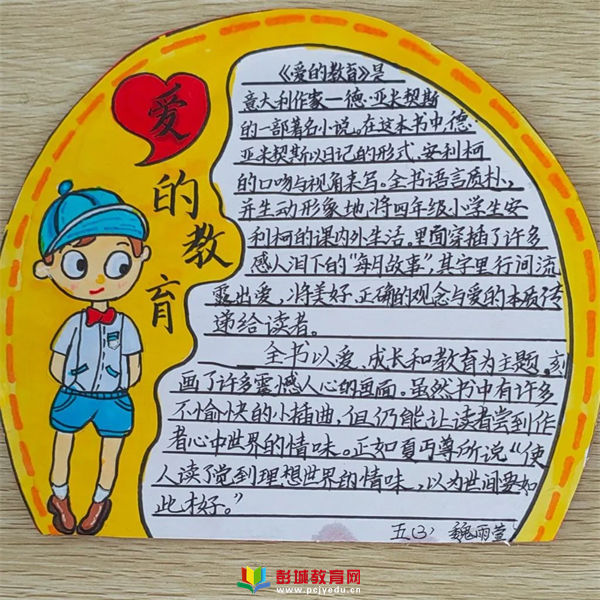 爱
的
教
育
《爱的教育》是
意大利作家一德·亚米契斯
的一部著名小说。在这本书中,德·
亚米契斯以日记的形式,安利柯
的口吻与视角来写。全书语言质朴,
并生动形象地将四年级小学生安
利柯的课内外生活。里面穿插了许多
感人泪下的“每月故事”,其字里行间流
露出爱,将美好、正确的观念与爱的本质传
递给读者。
全书以爱、成长和教育为主题,刻
画了许多震憾人心的画面。虽然书中有许多
不愉快的小插曲,但仍能让读者尝到作
者心中世界的情味。正如夏丏尊所说“使
人读了觉到理想世界的情味,以为世间要如
此才好。”
五(3) 魏雨萱
彭城教育网
www.pcjyedu.cn